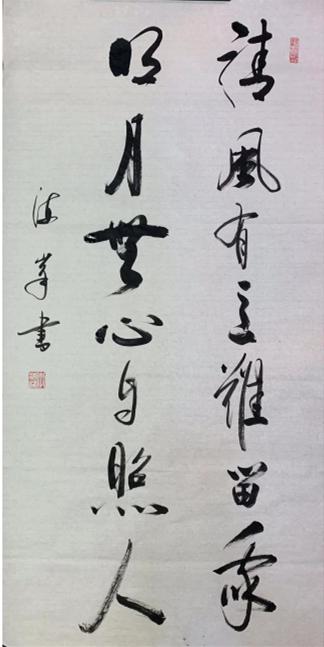 清風有意難留我
明月無心自照人
海峯書